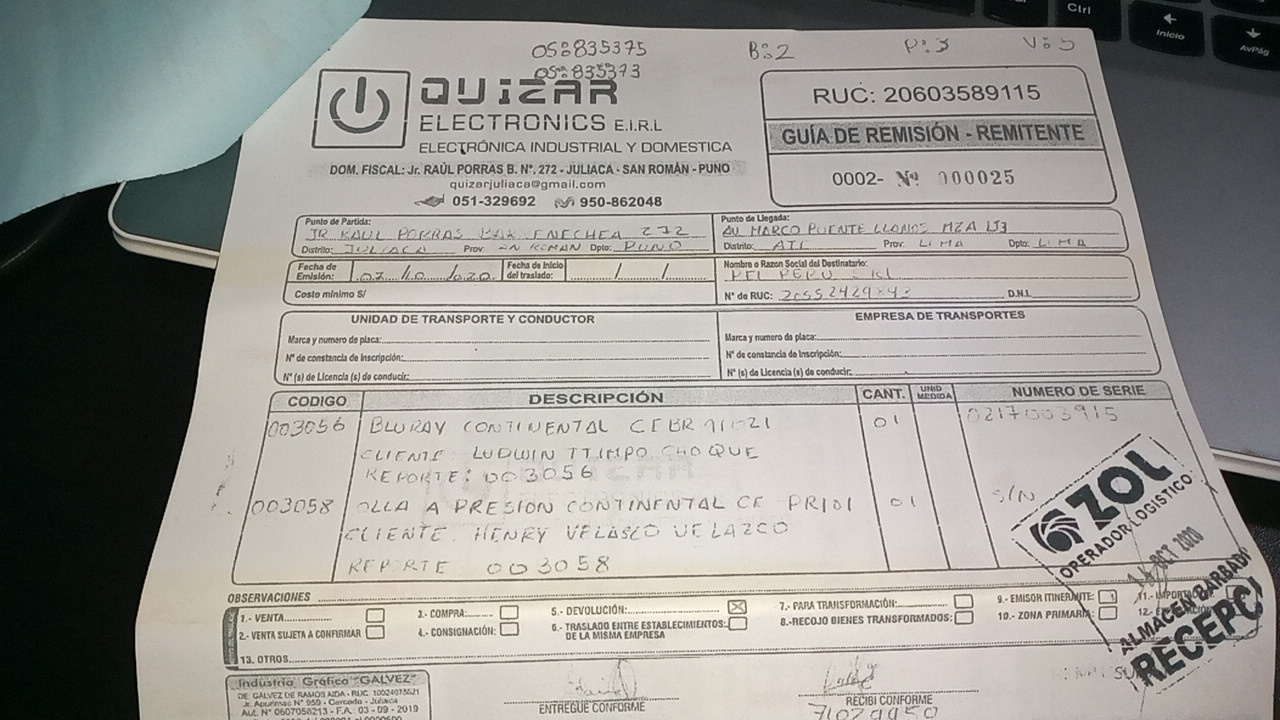 OS:835375
B:2
P:3
OS:835373
QUIZAR
ELECTRONICS E.I.R.L
ELECTRÓNICA INDUSTRIAL Y DOMESTICA
DOM. FISCAL: Jr. RAÚL PORRAS B. N°. 272 - JULIACA - SAN ROMÁN - PUNO
quizarjuliaca@gmail.com
051-329692 950-862048
RUC: 20603589115
GUÍA DE REMISIÓN - REMITENTE
0002- Nº 000025
Punto de Partida:
JR RAUL PORRAS 272
Distrito: JULIACA Prov: ROMAN Dpto: PUNO
Punto de Llegada:
AV MARCO PUENTE LLANOS MZA
Distrito: ATE Prov: LIMA Dpto: LIMA
Fecha de Emisión: 07/10/020
Fecha de Inicio del traslado: / /
Costo mínimo S/
Nombre o Razon Social del Destinatario:
PERU
N° de RUC: D.N.I.
UNIDAD DE TRANSPORTE Y CONDUCTOR
Marca y numero de placa:
N° de constancia de Inscripción:
N° (s) de Licencia (s) de conducir:
EMPRESA DE TRANSPORTES
Marca y numero de placa:
N° de constancia de Inscripción:
N° (s) de Licencia (s) de conducir:
CODIGO DESCRIPCIÓN CANT. UNID MEDIDA NUMERO DE SERIE
003056 BLURAY CONTINENTAL 01 0217003915
CLIENTE: LUDWIN TTIMPO CHOQUE
REPORTE: 003056
003058 OLLA A PRESION CONTINENTAL CE PR101 01 S/N
CLIENTE. HENRY VELASCO VELAZCO
REPORTE 003058
ZOL
OPERADOR LOGISTICO
OCT 2020
ALMACEN BARBADI
RECEPC
OBSERVACIONES
1.- VENTA
2.- VENTA SUJETA A CONFIRMAR
3.- COMPRA:
4.- CONSIGNACIÓN:
5.- DEVOLUCIÓN:
6.- TRASLADO ENTRE ESTABLECIMIENTOS: DE LA MISMA EMPRESA
7.- PARA TRANSFORMACIÓN:
8.-RECOJO BIENES TRANSFORMADOS:
9.- EMISOR ITINERANTE:
10.- ZONA PRIMARIA:
13. OTROS
Industria Gráfica "GALVEZ"
DE: GALVEZ DE RAMOS AIDA - RUC. 10024075521
Jr. Apurimac N° 959 - Cercado - Juliaca
Aut. N° 0607058213 - F.A. 03 - 09 - 2019
ENTREGUE CONFORME
RECIBI CONFORME
71029950